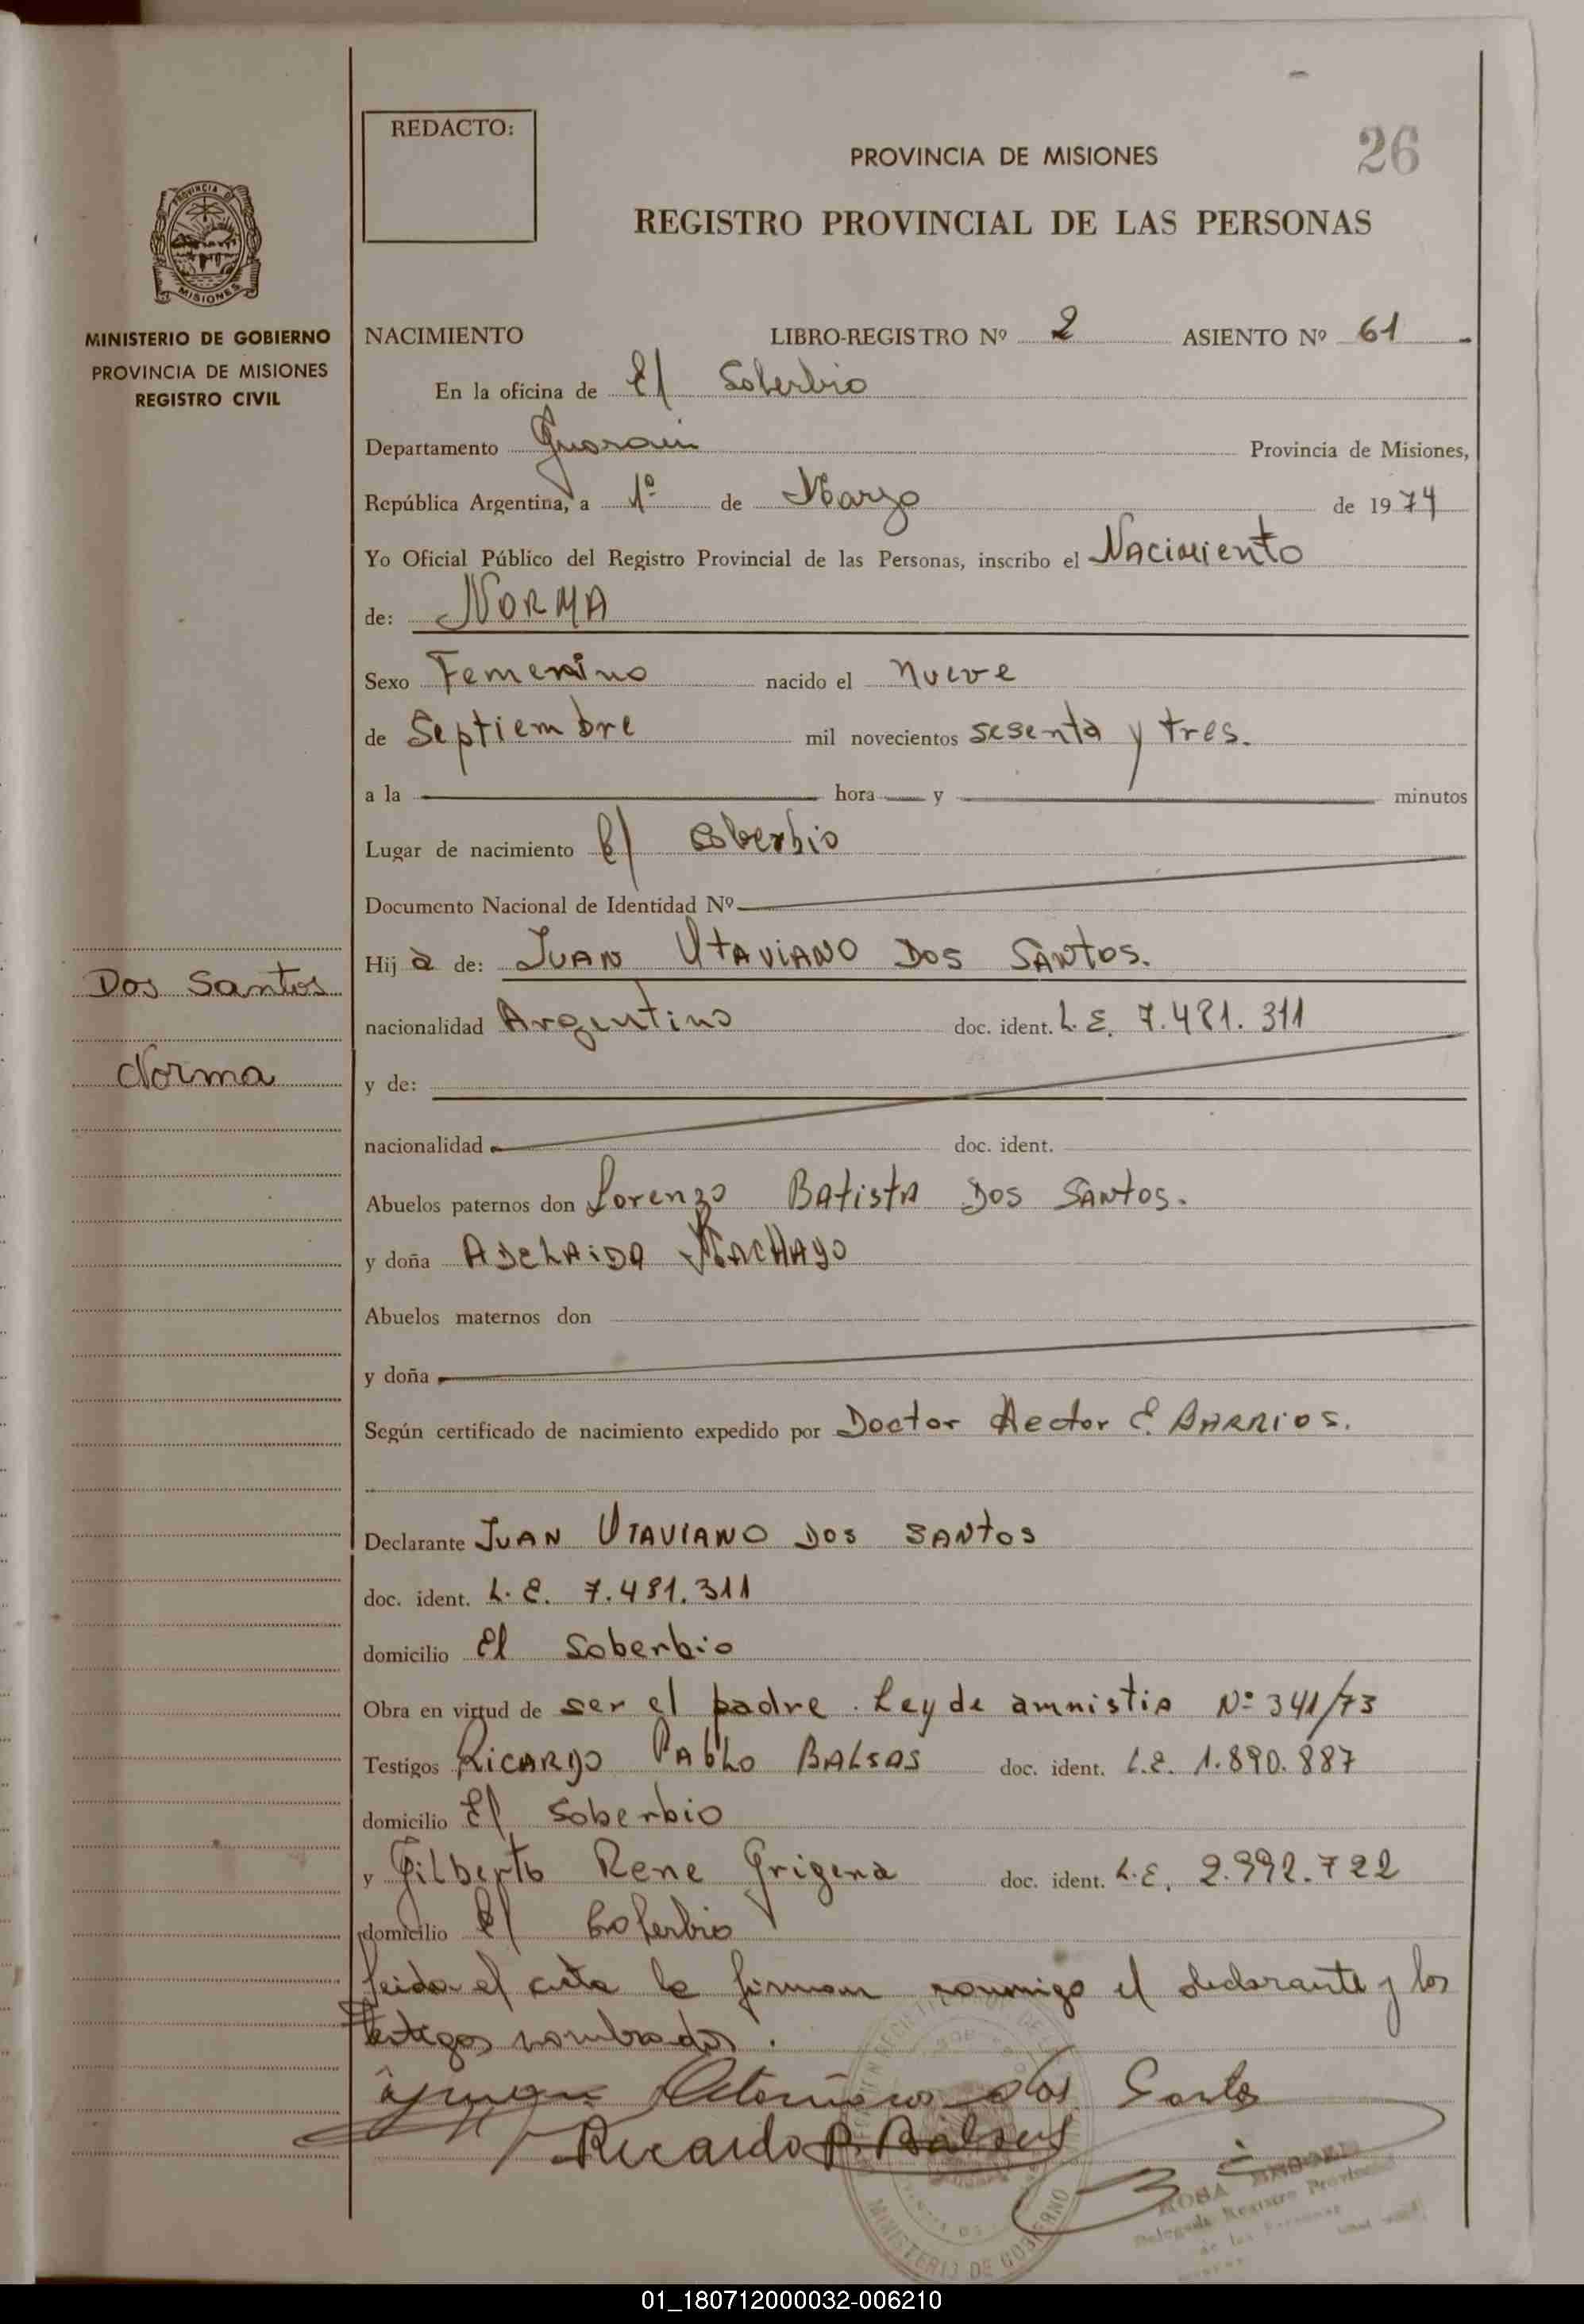 REDACTO:
26
PROVINCIA DE MISIONES
REGISTRO PROVINCIAL DE LAS PERSONAS
PROVINCIA DE
MISIONES
MINISTERIO DE GOBIERNO
PROVINCIA DE MISIONES
REGISTRO CIVIL
NACIMIENTO LIBRO-REGISTRO Nº 2 ASIENTO Nº 61
En la oficina de El Soberbio
Departamento Guarani Provincia de Misiones,
República Argentina, a 1º de Marzo de 1974
Yo Oficial Público del Registro Provincial de las Personas, inscribo el Nacimiento
de: NORMA
Sexo Femenino nacido el nueve
de Septiembre mil novecientos sesenta y tres.
a la hora y minutos
Lugar de nacimiento El Soberbio
Documento Nacional de Identidad Nº
Hij a de: JUAN UTAVIANO DOS SANTOS.
Dos Santos
nacionalidad Argentino doc. ident. L.E. 7.481.311
Norma
y de:
nacionalidad doc. ident.
Abuelos paternos don Lorenzo Batista Dos Santos.
y doña ADELAIDA MACHADO
Abuelos maternos don
y doña
Según certificado de nacimiento expedido por Doctor Hector E. BARRIOS.
Declarante JUAN UTAVIANO DOS SANTOS
doc. ident. L.E. 7.481.311
domicilio El Soberbio
Obra en virtud de ser el padre. Ley de amnistia Nº 341/73
Testigos RICARDO PABLO BALSAS doc. ident. L.E. 1.890.887
domicilio El Soberbio
y Gilberto Rene Grigera doc. ident. L.E. 2.992.722
domicilio El Soberbio
Leida el acta la firman conmigo el declarante y los
testigos nombrados.
dos Santos
Ricardo P. Balsas
MINISTERIO DE GOBIERNO
ROSA
Delegada Registro Provincial
de las Personas
01_180712000032-006210